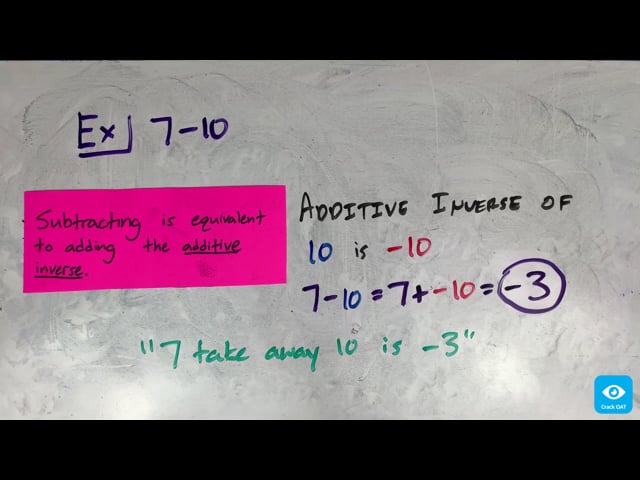 Ex] 7-10
Subtracting is equivalent
to adding the additive
inverse.
ADDITIVE INVERSE OF
10 is -10
7-10=7+-10=-3
"7 take away 10 is -3"
Crack OAT